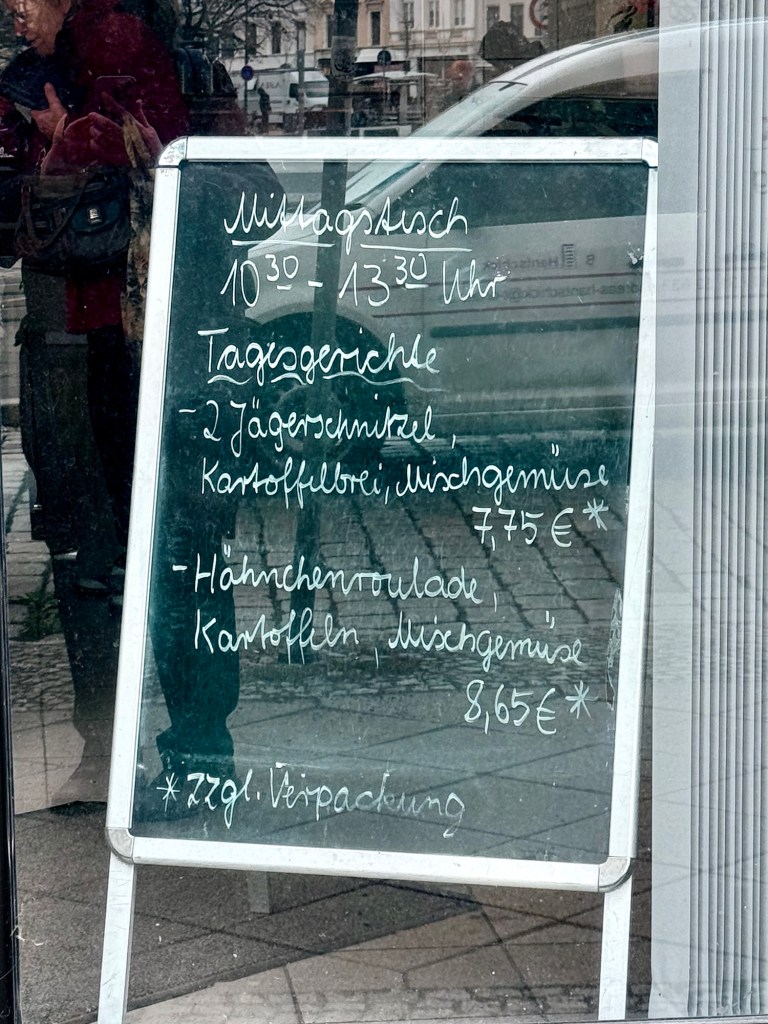 Mittagstisch
10³⁰ - 13³⁰ Uhr
Tagesgerichte
- 2 Jägerschnitzel,
Kartoffelbrei, Mischgemüse
7,75 € *
- Hähnchenroulade,
Kartoffeln, Mischgemüse
8,65 € *
* zzgl. Verpackung